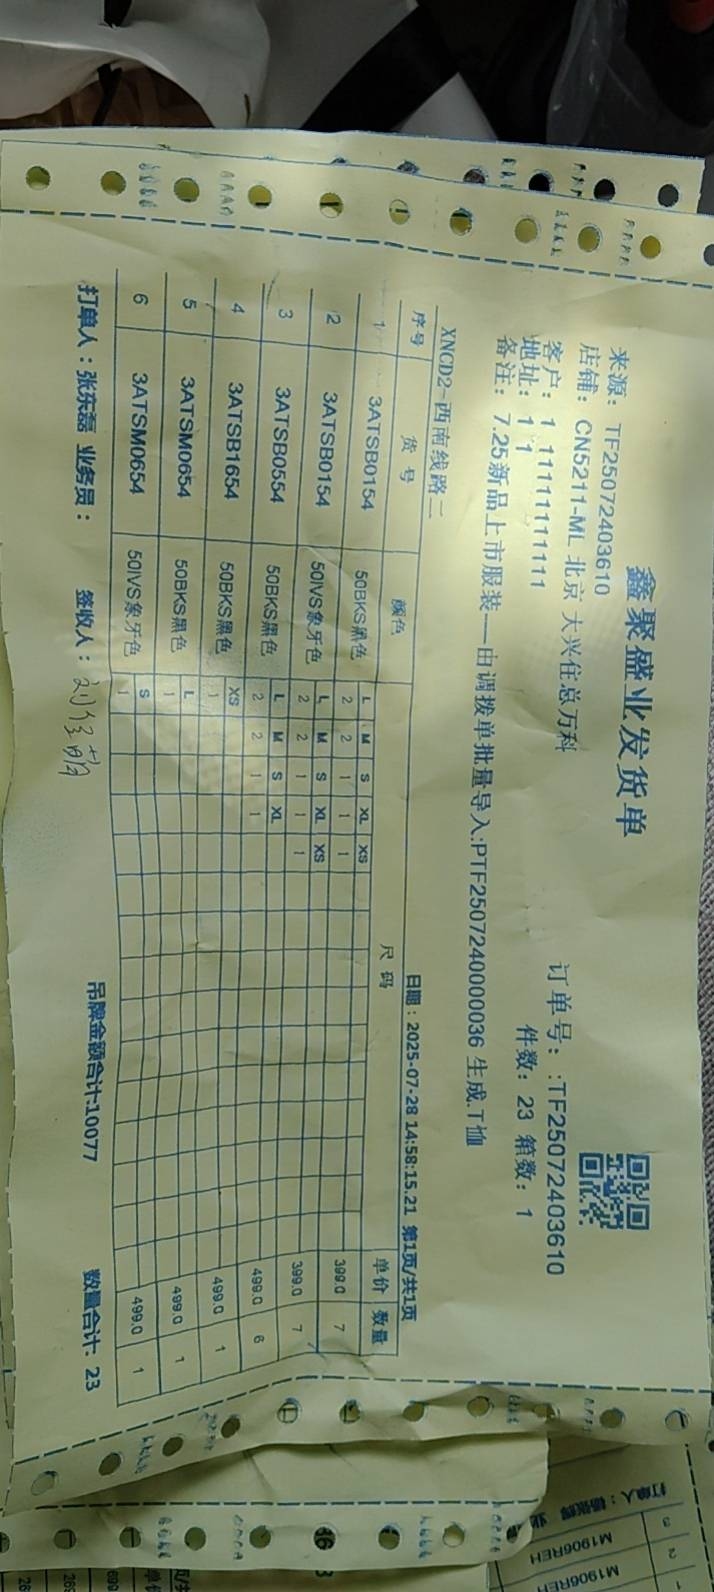 鑫聚盛业发货单
来源：TF25072403610
订单号：:TF25072403610
店铺：CN5211-ML 北京 大兴住总万科
件数：23 箱数：1
客户：1 11111111111
地址：1 1
备注：7.25新品上市服装——由调拨单批量导入:PTF2507240000036 生成.T恤
XNCD2-西南线路二
日期：2025-07-28 14:58:15.21 第1页/共1页
序号 货号 颜色 尺码 单价 数量
1 3ATSB0154 50BKS黑色 L M S XL XS 399.0 7
2 2 1 1 1
2 3ATSB0154 50IVS象牙色 L M S XL XS 399.0 7
2 2 1 1 1
3 3ATSB0554 50BKS黑色 L M S XL 499.0 6
2 2 1 1
4 3ATSB1654 50BKS黑色 XS 499.0 1
1
5 3ATSM0654 50BKS黑色 L 499.0 1
1
6 3ATSM0654 50IVS象牙色 S 499.0 1
1
打单人：张东磊 业务员： 签收人： 吊牌金额合计:10077 数量合计: 23
打单人：
M1906REH
M1906REH